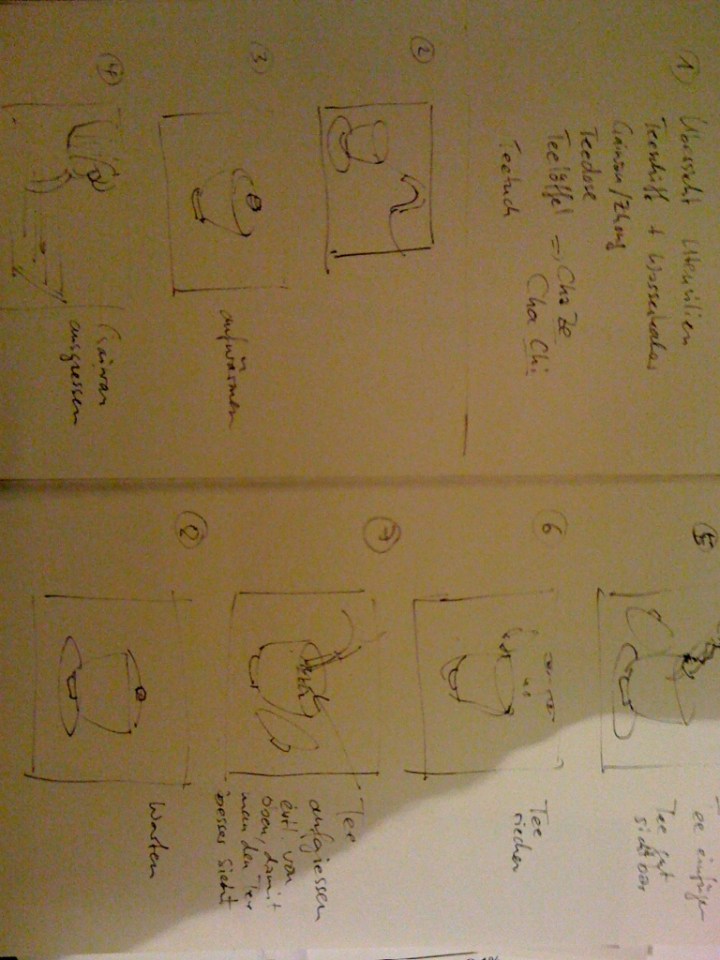 1) Übersicht Utensilien
Teeschiff + Wasserkocher
Gaiwan/Zhong
Teedose
Teelöffel => Cha Ze
Cha Chi
Teetuch
2
3
aufwärmen
4
Gaiwan
ausgiessen
5
einfügen
Tee gut
sichtbar
6
Tee
riechen
7
Tee
aufgiessen
evtl. von
oben, damit
man den Tee
besser sieht
8
Warten